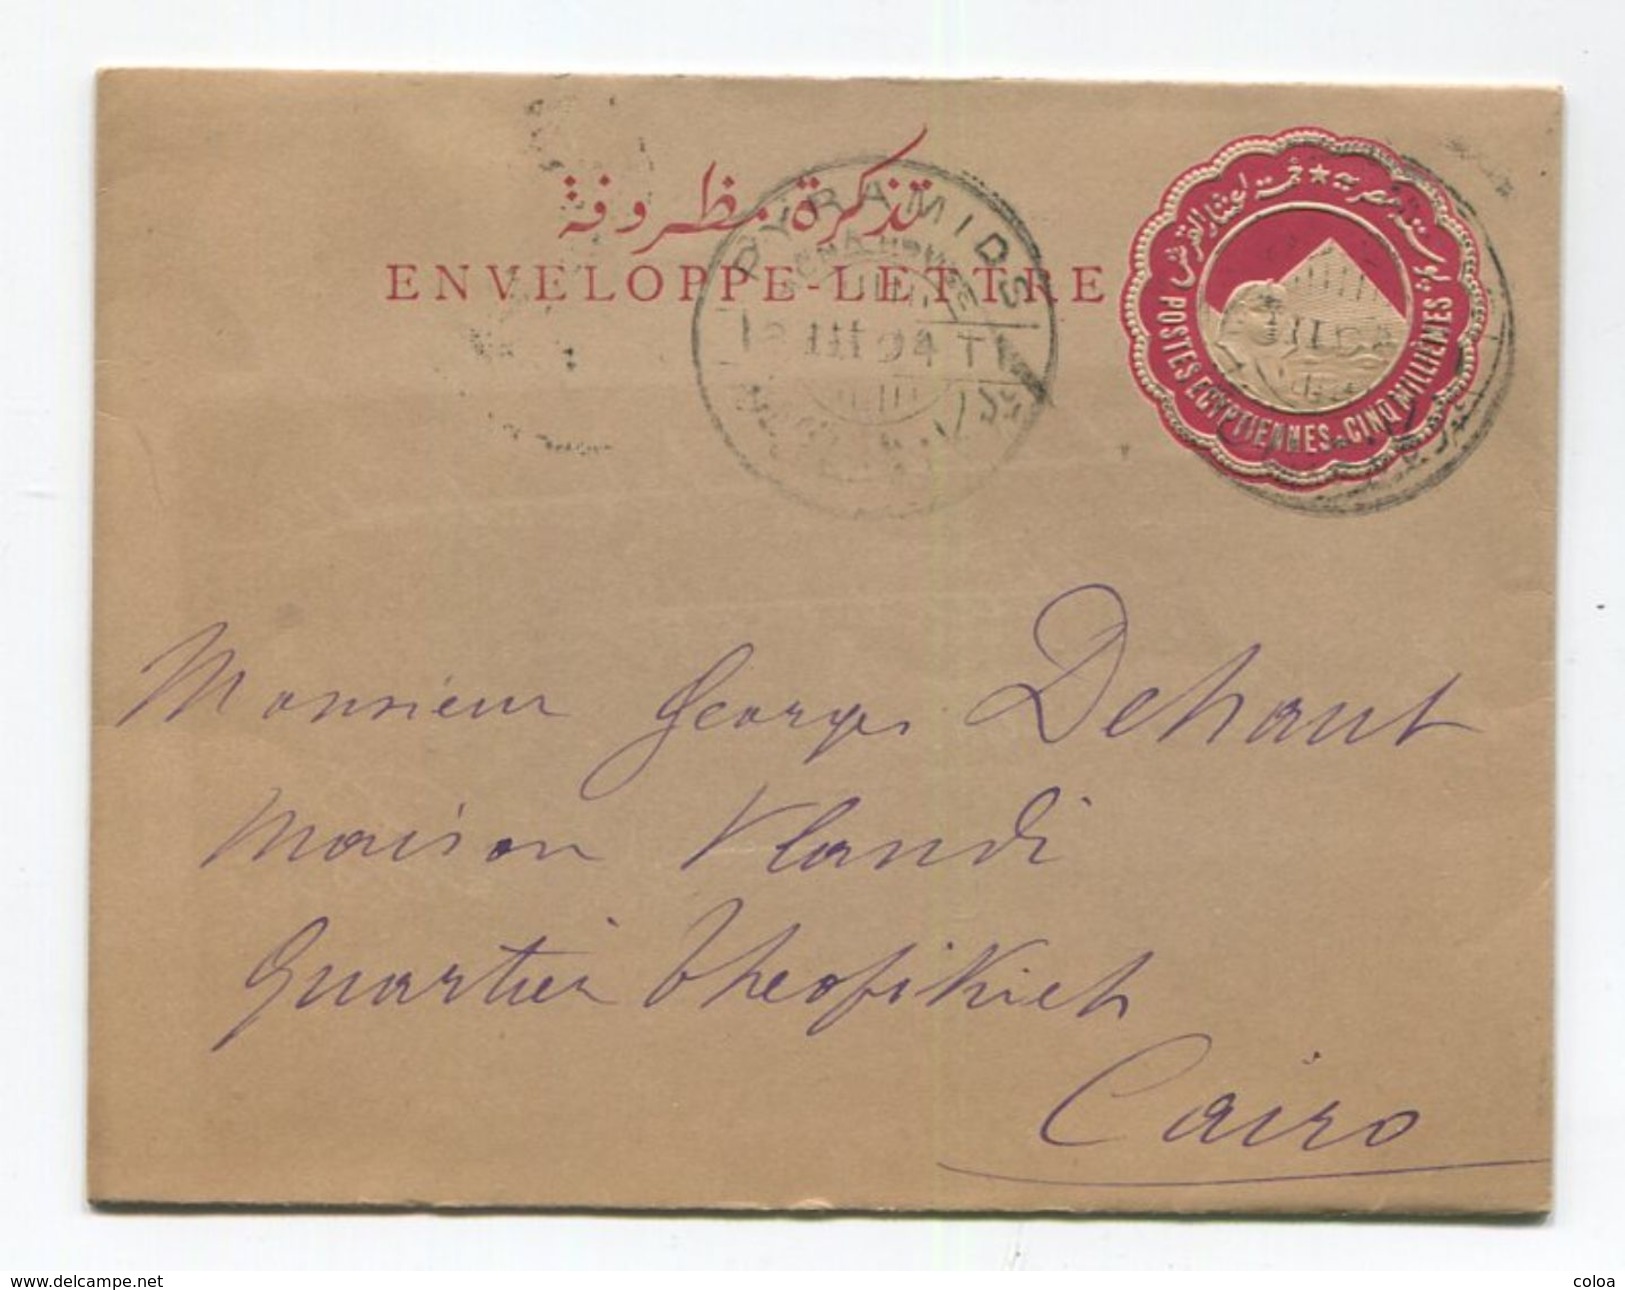 تذكرة مظروفة
ENVELOPPE-LETTRE
PYRAMIDS
III 94 T
بوستة مصرية ★ خمسة اعشار القرش
POSTES EGYPTIENNES. CINQ MILLIEMES
Monsieur Georges Dehaut
Maison Klandi
Quartier Theofikieh
Cairo
www.delcampe.net
coloa